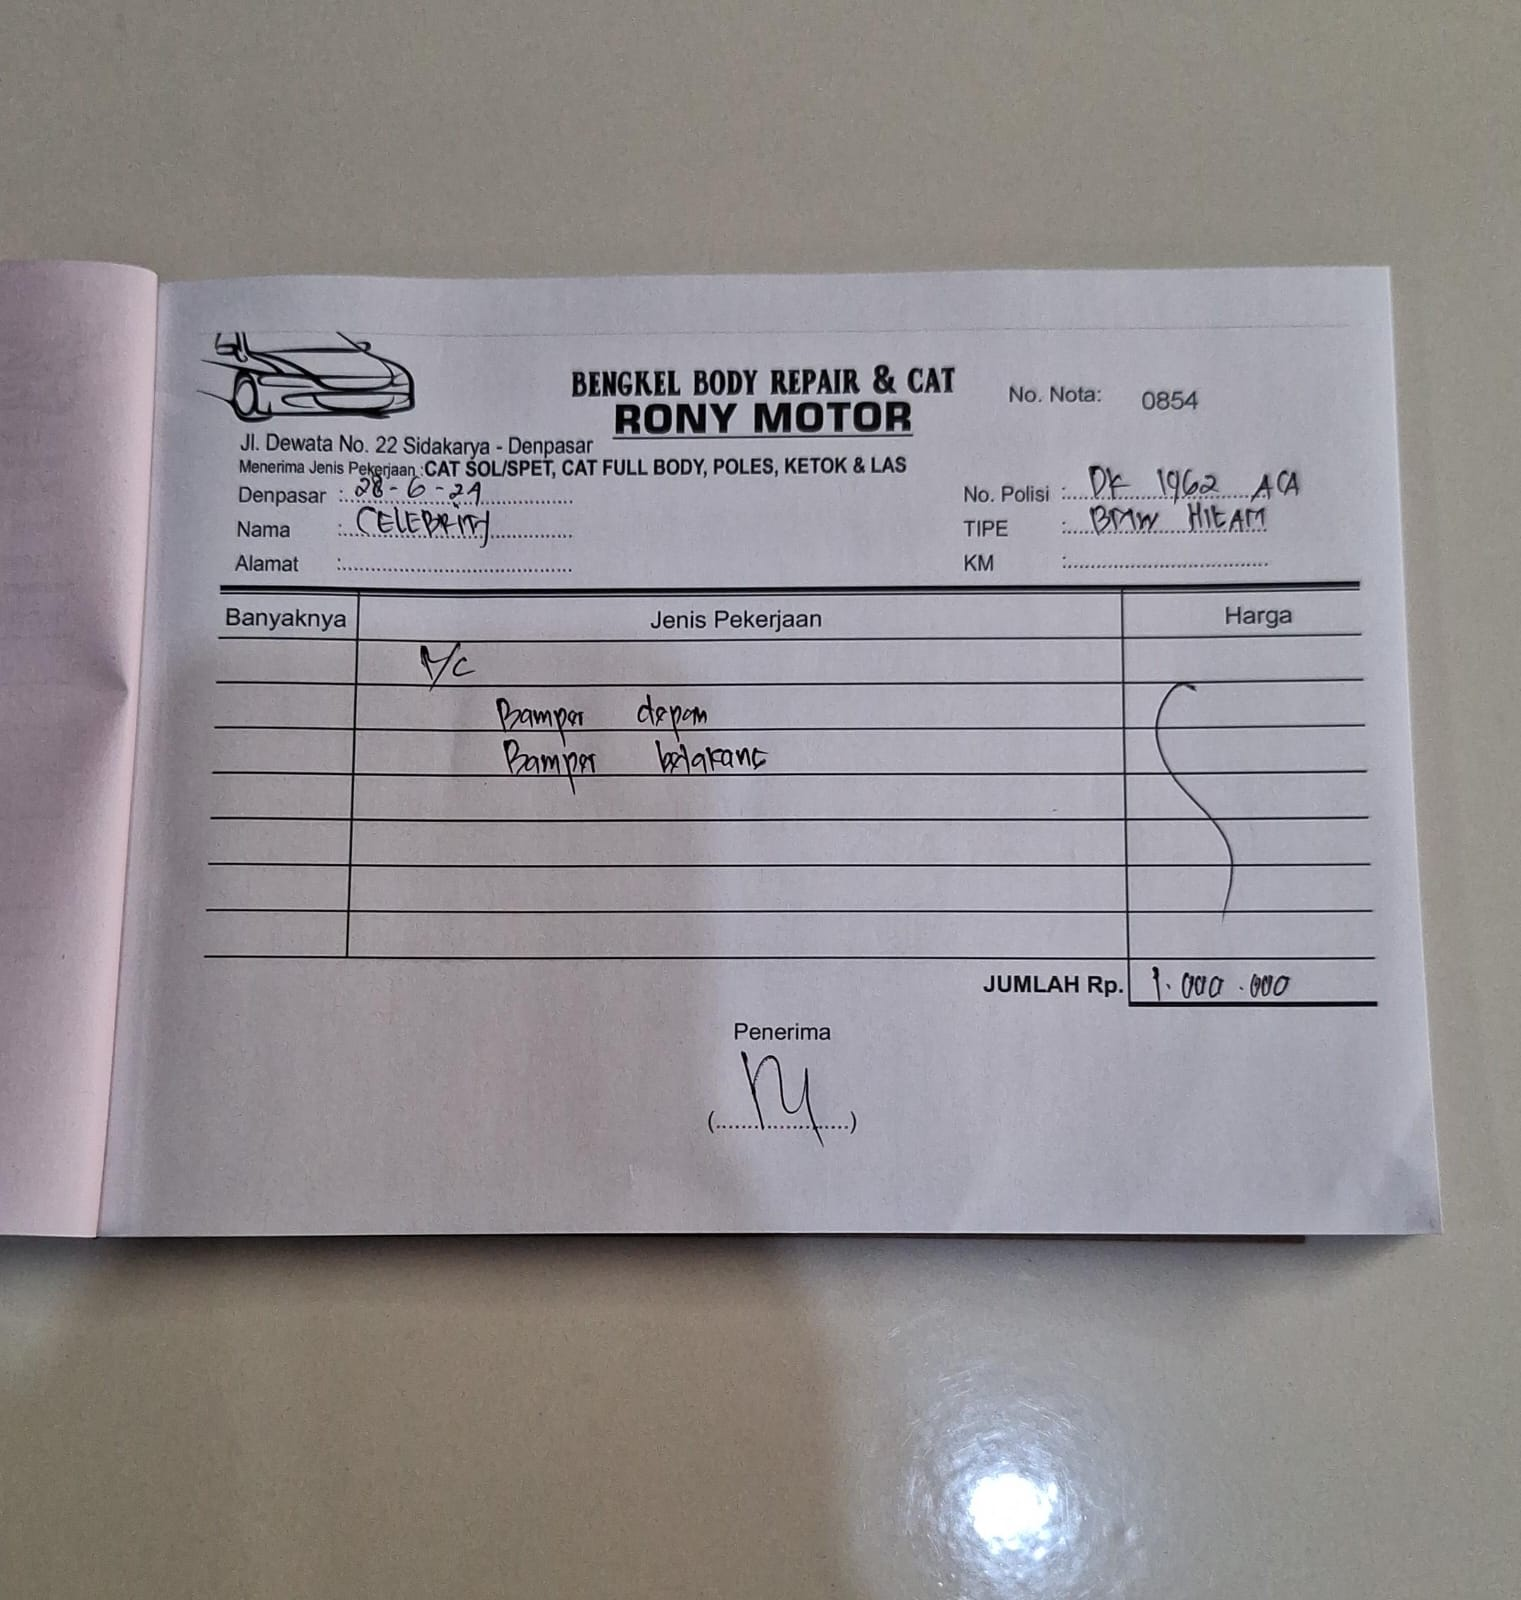 BENGKEL BODY REPAIR & CAT
RONY MOTOR
No. Nota: 0854
Jl. Dewata No. 22 Sidakarya - Denpasar
Menerima Jenis Pekerjaan :CAT SOL/SPET, CAT FULL BODY, POLES, KETOK & LAS
Denpasar : 28-6-24
No. Polisi : DK 1962 ACA
Nama : CELEBRITY
TIPE : BMW HITAM
Alamat :
KM :
Banyaknya Jenis Pekerjaan Harga
Bamper depan
Bamper belakang
JUMLAH Rp. 1.000.000
Penerima
(....................)